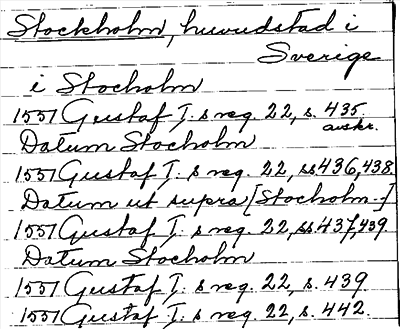 Stockholm, huvudstad i
Sverige
i Stocholm
1557 Gustaf I. s reg. 22, s. 435.
avskr.
Datum Stocholm
1557 Gustaf I. s reg. 22, ss 436, 438
Datum ut supra [Stocholm-]
1557 Gustaf I. s reg. 22, ss 437, 439
Datum Stocholm
1557 Gustaf I. s reg. 22, s. 439
1557 Gustaf I. s reg. 22, s. 442